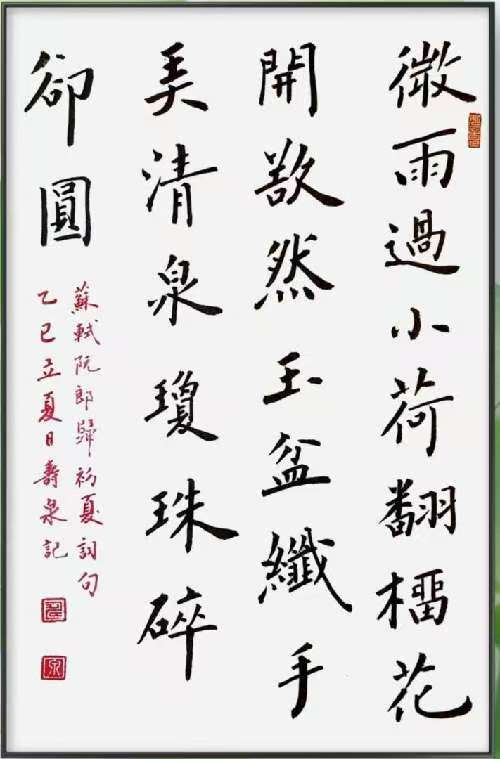 微雨過小荷翻榴花
開欲然玉盆纖手
弄清泉瓊珠碎
卻圓
蘇軾阮郎歸初夏詞句
乙巳立夏日壽泉記